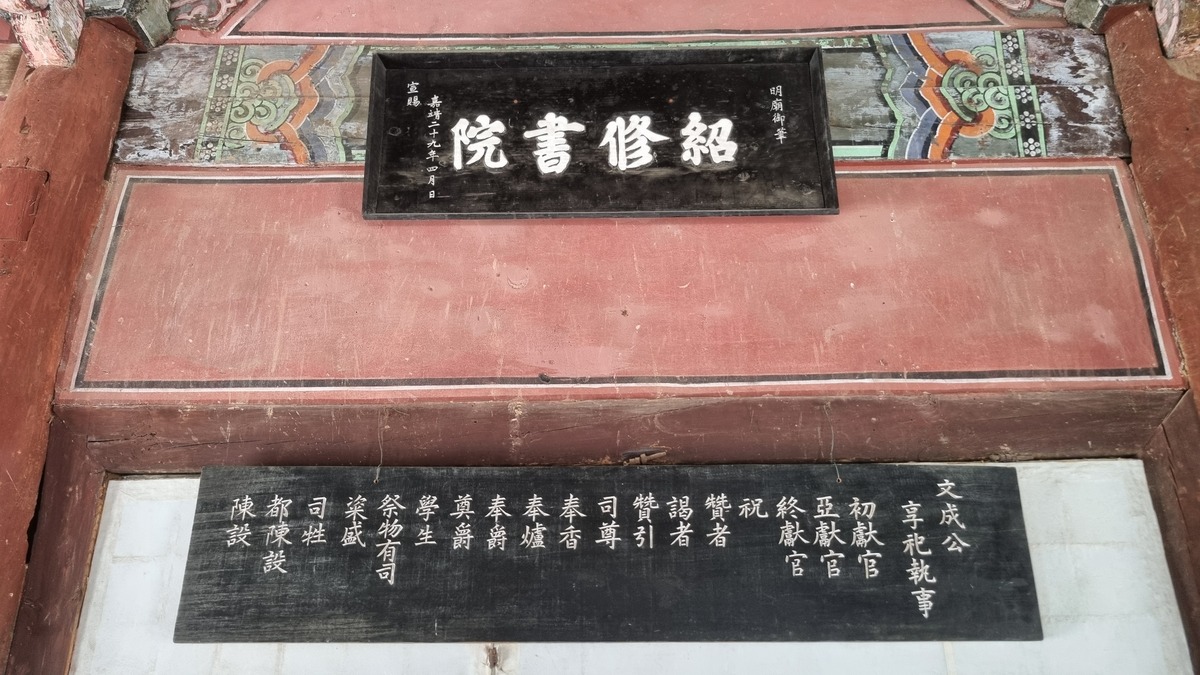 明廟御筆
紹修書院
嘉靖二十九年四月日
宣賜
文成公
享祀執事
初獻官
亞獻官
終獻官
祝
贊者
謁者
贊引
司尊
奉香
奉爐
奉爵
奠爵
學生
祭物有司
粢盛
司牲
都陳設
陳設